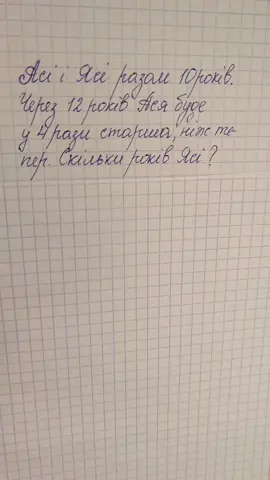 Асі і Ясі разом 10 років.
Через 12 років Ася буде
у 4 рази старша, ніж те-
пер. Скільки років Ясі?